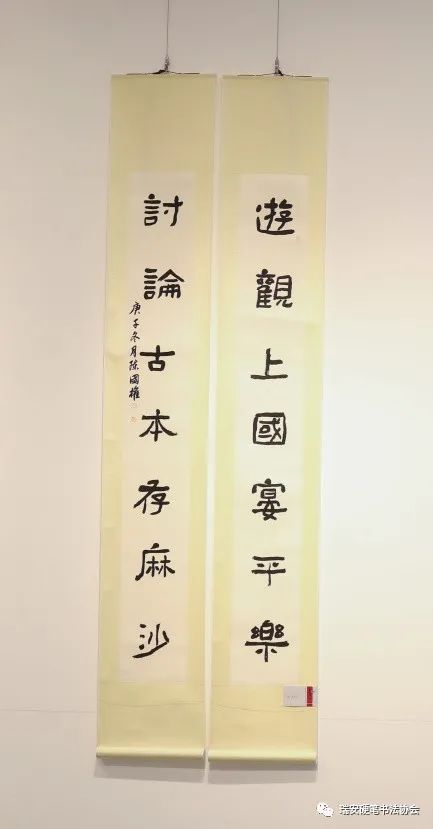 遊觀上國宴平樂
討論古本存麻沙
庚子冬月陳國權
瑞安硬笔书法协会